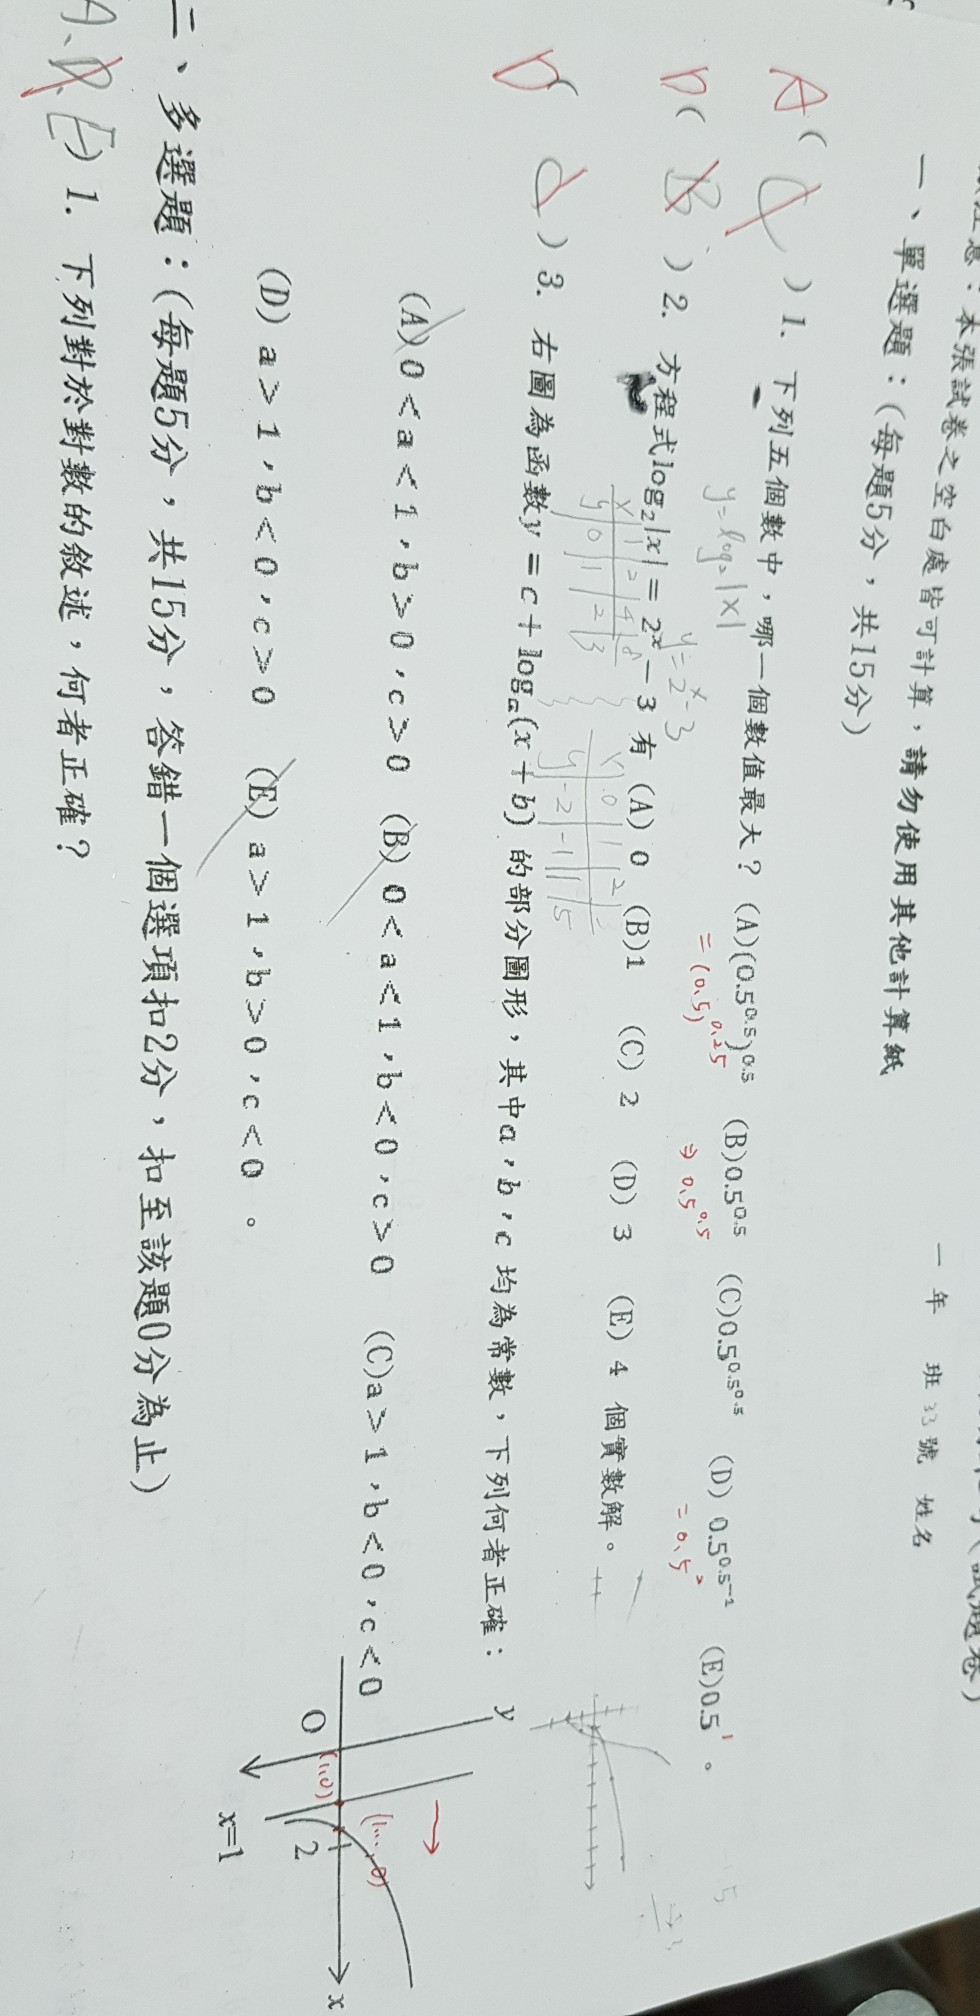 注意：本張試卷之空白處皆可計算，請勿使用其他計算紙
一年 班 33號 姓名
一、單選題：(每題5分，共15分)
A( ) 1. 下列五個數中，哪一個數值最大？ (A)(0.5^0.5)^0.5 (B)0.5^0.5 (C)0.5^0.5^0.5 (D) 0.5^0.5^-1 (E)0.5^1 。
= (0.5)^0.25 ⇒ 0.5^0.5 = 0.5^2
y=log₂|x| y=2^x-3
D( B ) 2. 方程式log₂|x|=2^x－3有 (A) 0 (B)1 (C) 2 (D) 3 (E) 4 個實數解。
x 1 2 4 8
y 0 1 2 3
x 0 1 2 3
y -2 -1 1 5
D( d ) 3. 右圖為函數y=c+logₐ(x+b) 的部分圖形，其中a，b，c 均為常數，下列何者正確：
(A) 0<a<1，b>0，c>0 (B) 0<a<1，b<0，c>0 (C)a>1，b<0，c<0
(D) a>1，b<0，c>0 (E) a>1，b>0，c<0 。
y
O
(1,0)
2
x=1
x
二、多選題：(每題5分，共15分，答錯一個選項扣2分，扣至該題0分為止)
A、D、E) 1. 下列對於對數的敘述，何者正確？